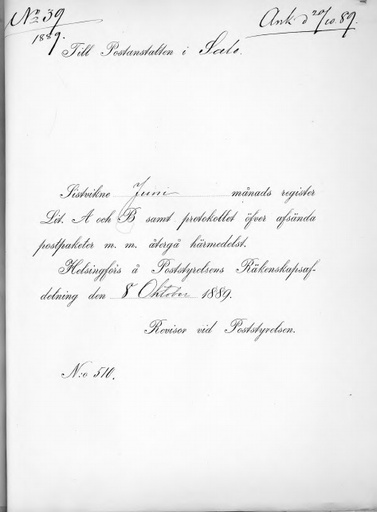 No 39
1889.
Ank d 20/10 89.
Till Postanstalten i Salo.
Sistvikne Juni månads register
Lit. A och B samt protokollet öfver afsända
postpaketer m. m. återgå härmedelst.
Helsingfors å Poststyrelsens Räkenskapsaf-
delning den 8 Oktober 1889.
Revisor vid Poststyrelsen.
N:o 510.